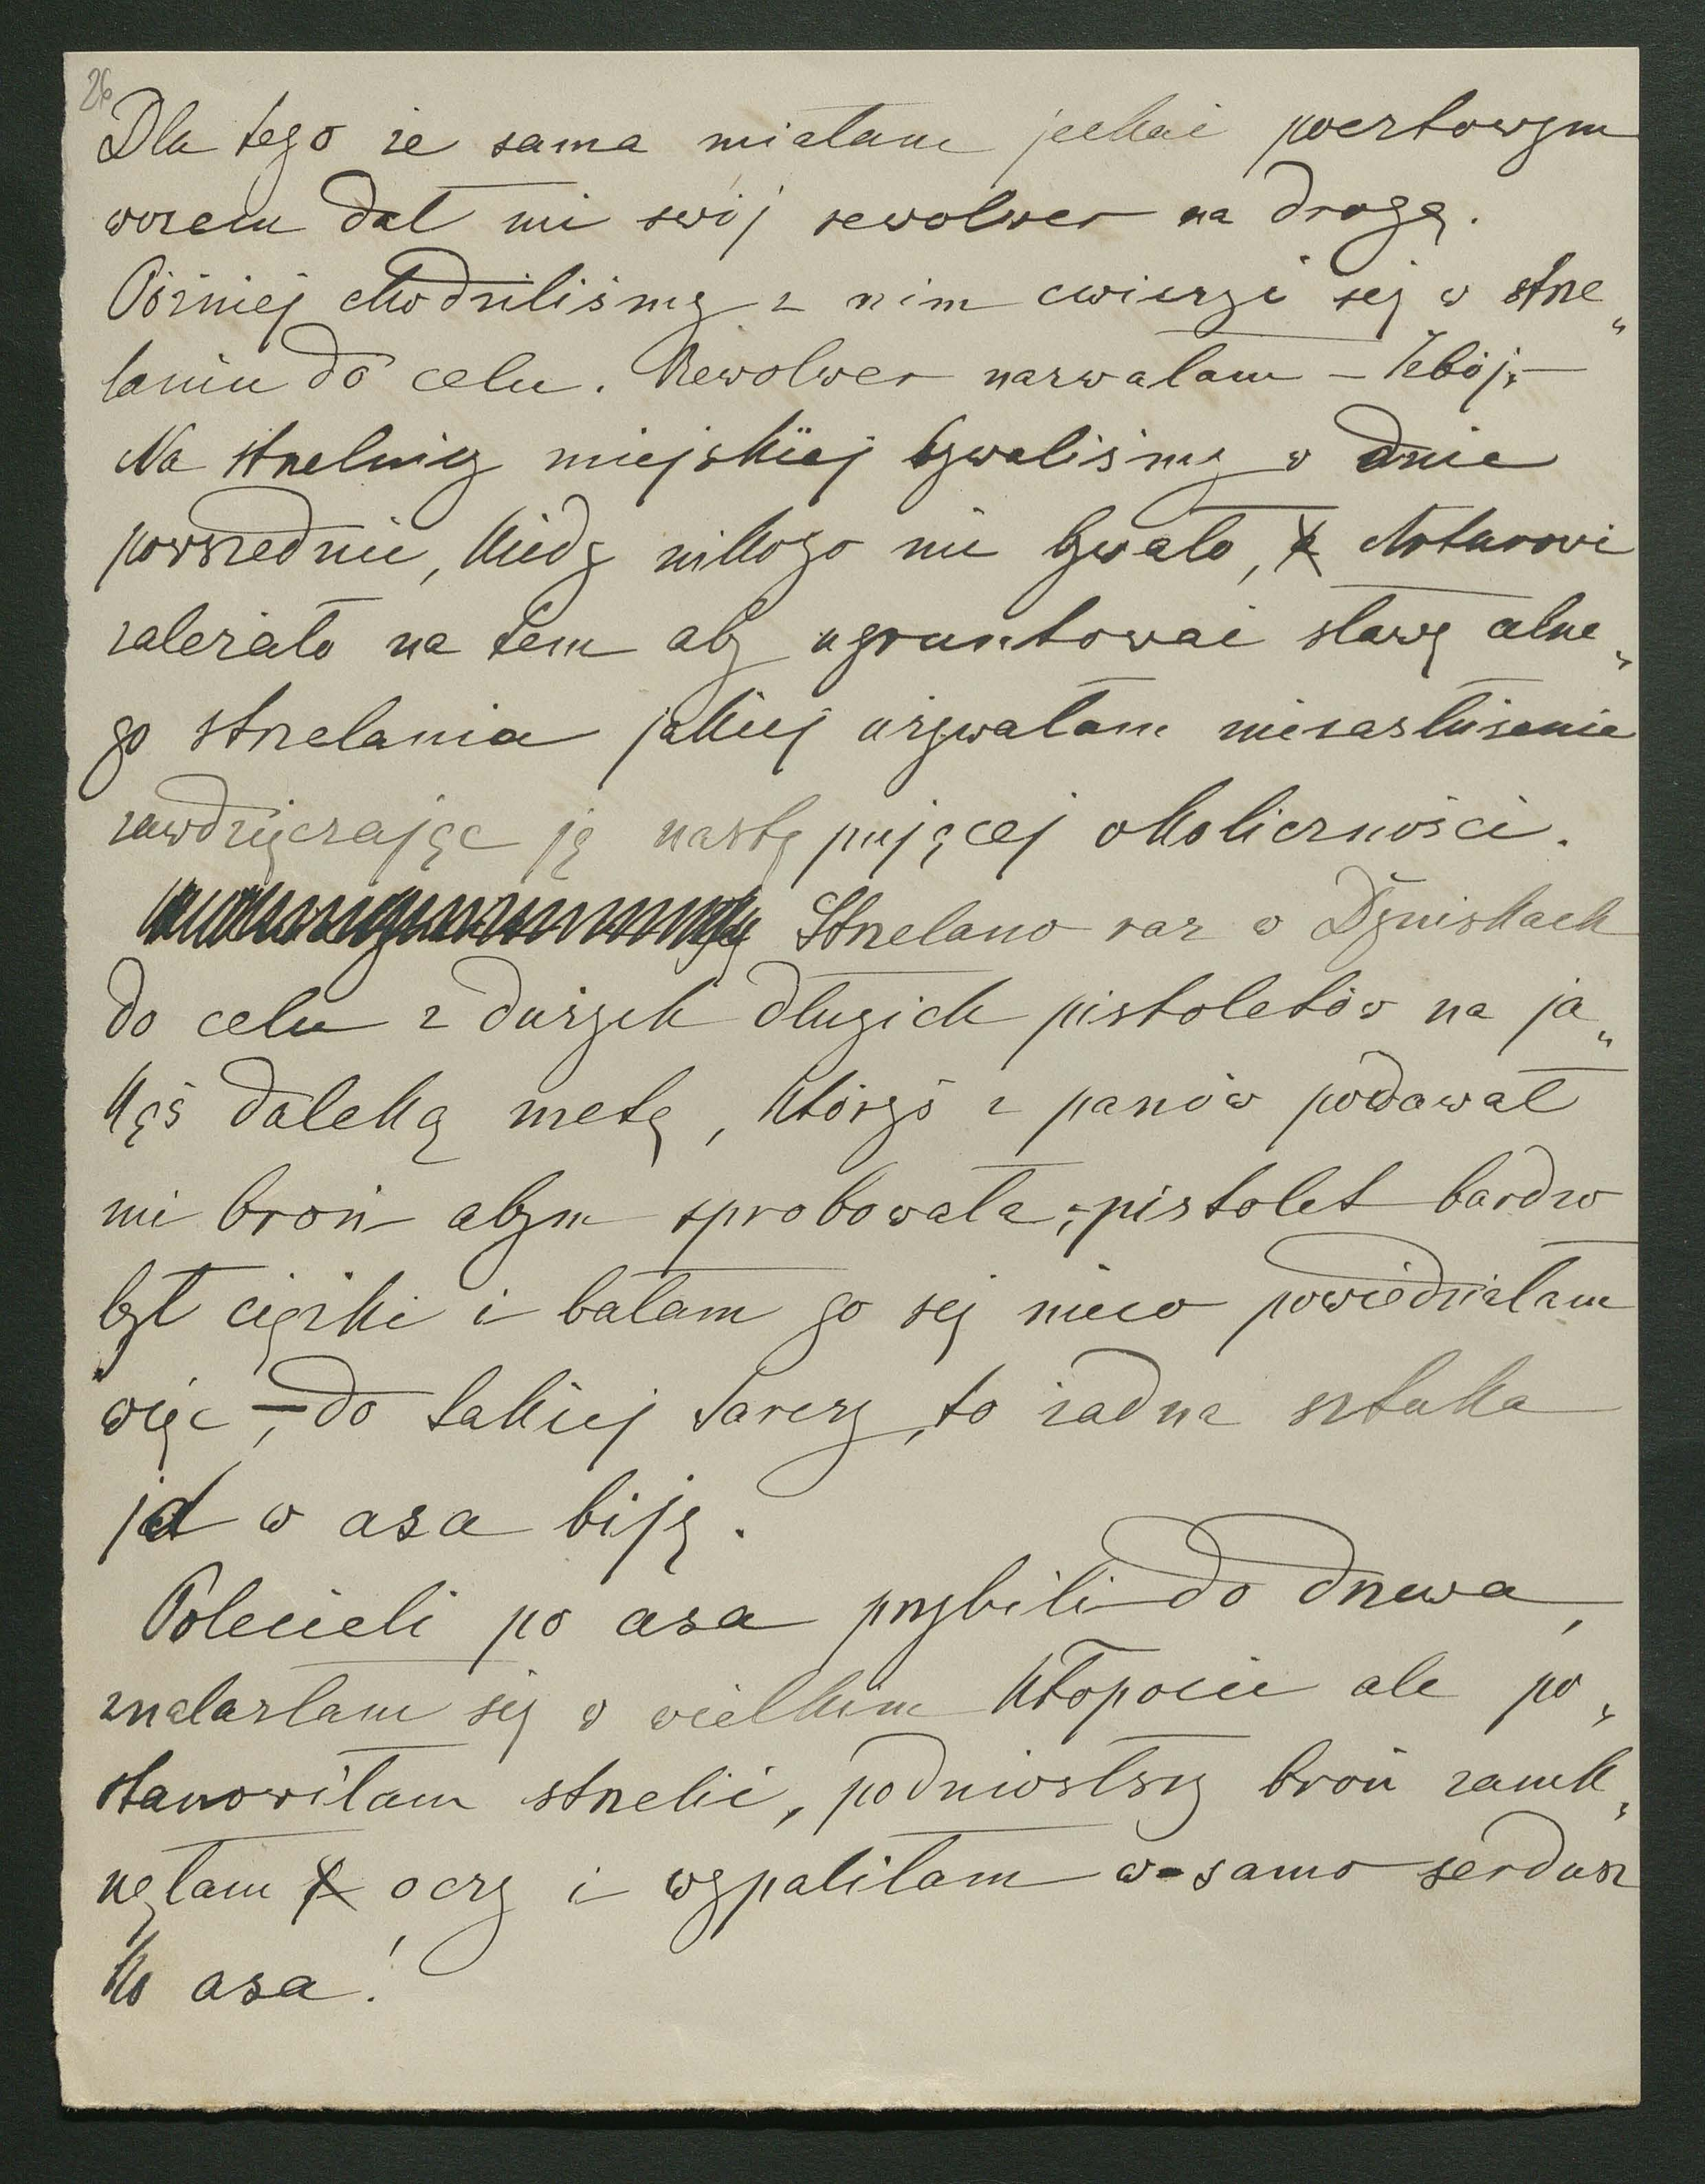 26
Dla tego że sama miałam jechać pocztowym
wozem dał mi swój rewolwer na drogę.
Później chodziliśmy z nim cwiczyć się w strze„
laniu do celu. Rewolwer nazwałam –
Na strzelnicy miejskiej bywaliśmy w dnie
powszednie, kiedy nikogo nie bywało, Arturowi
zależało na tem aby ugruntować sławę celne„
go strzelania jakiej używałam niezasłużenie
zawdzięczając ją następującej okoliczności.
Strzelano raz w Dyniskach
do celu z dużych długich pistoletów na ja„
kąś daleką metę, któryś z panów podawał
mi broń abym sprobowała, – pistolet bardzo
był ciężki i bałam go się nieco powiedziałam
więc, – do takiej tarczy, to żadna sztuka
ja w asa biję.
Polecieli po asa przybili do drzewa,
znalazłam się w wielkim kłopocie ale po„
stanowiłam strzelić, podniosłszy broń zamk„
nęłam oczy i wypaliłam w samo serdusz
ko asa!